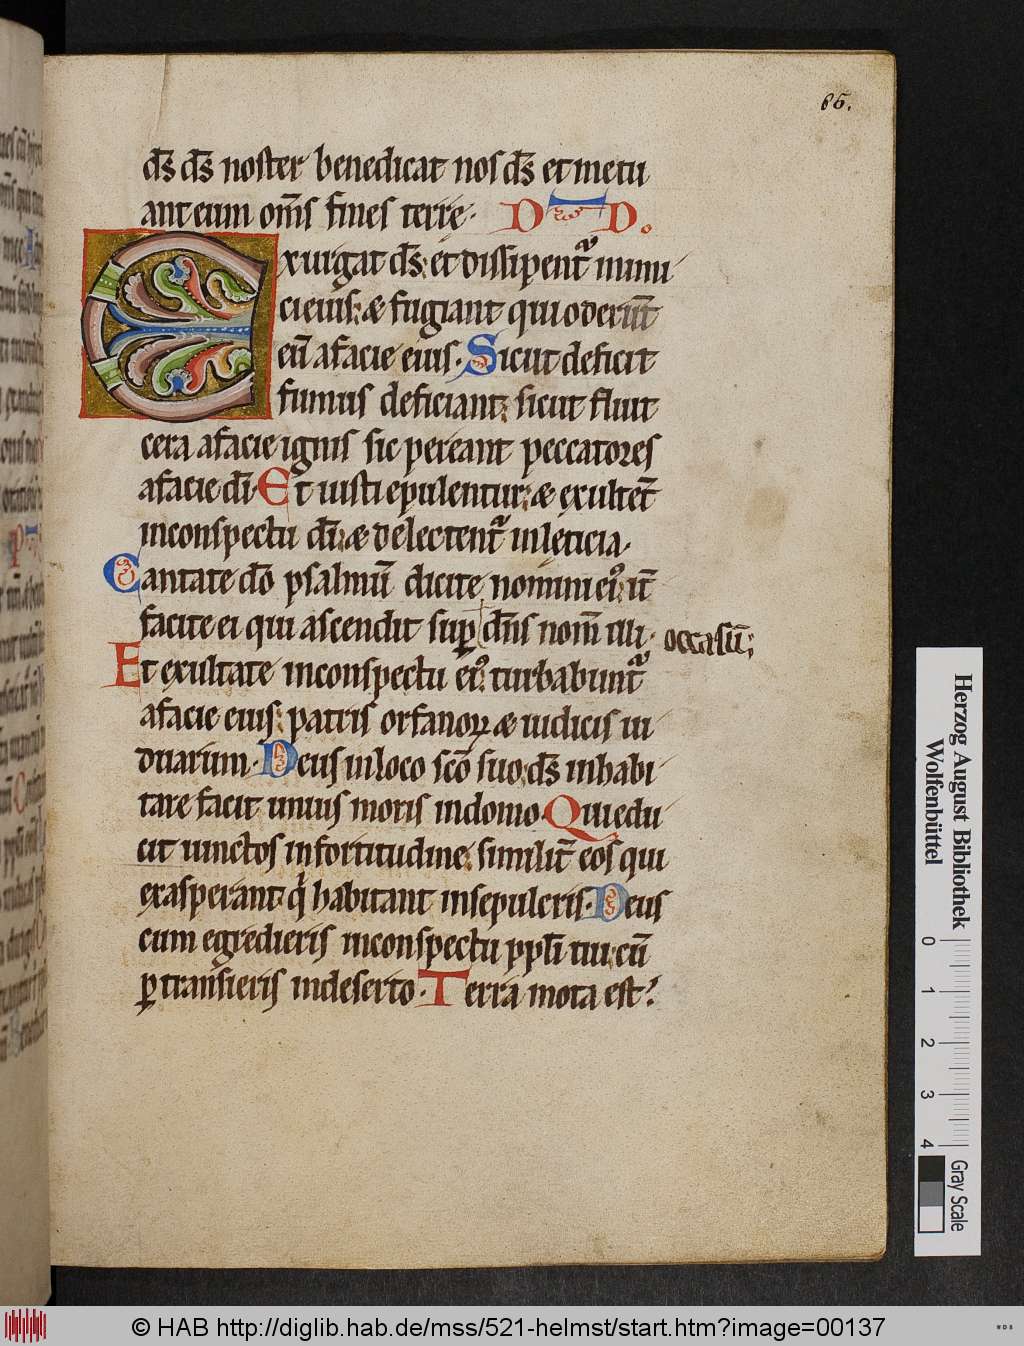 65.
d̄s d̄s noster benedicat nos d̄s et metu
ant eum om̄s fines terrę. D D.
Exurgat d̄s et dissipent᷑ inimi
ci eius, & fugiant qui oderūt
eū a facie eius. Sicut deficit
fumus deficiant, sicut fluit
cera a facie ignis sic pereant peccatores
a facie dī. Et iusti epulentur, & exultēt
in conspectu dī, & delectent᷑ in lęticia.
Cantate dō psalmū dicite nomini eiꝰ, it̄
facite ei qui ascendit suꝑ dn̄s nom̄ illi. occasū;
Et exultate in conspectu eiꝰ, turbabunt᷑
a facie eius, patris orfanoꝝ & iudicis ui
duarum. Deus in loco scō suo, d̄s inhabi
tare facit unius moris in domo. Qui edu
cit uinctos in fortitudine, similit̄ eos qui
exasperant, q̇ habitant in sepulcris. Deus
cum egredieris in conspectu ppl̄i tui, cū
ꝑtransieris in deserto. Terra mota est
Herzog August Bibliothek
Wolfenbüttel
0 1 2 3 4
Gray Scale
© HAB http://diglib.hab.de/mss/521-helmst/start.htm?image=00137